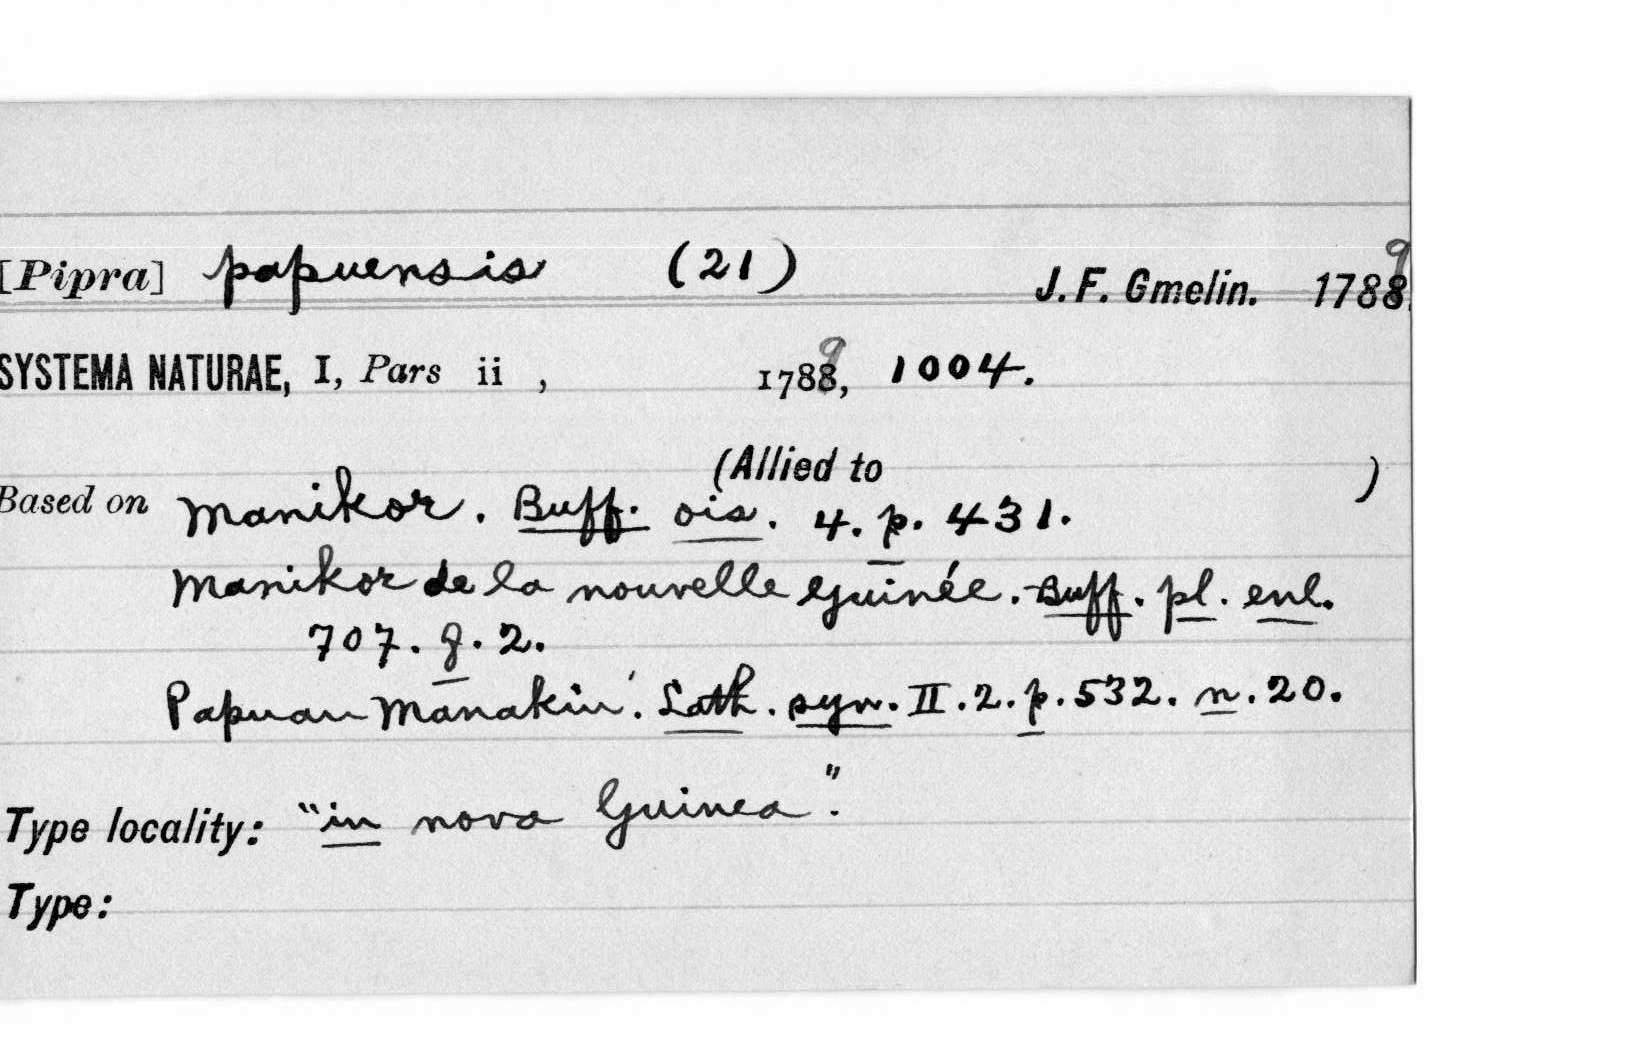 [Pipra] papuensis (21) J. F. Gmelin. 1788 9
SYSTEMA NATURAE, I, Pars ii , 1788 9, 1004.
(Allied to )
Based on Manikor. Buff. ois. 4. p. 431.
Manikor de la nouvelle Guinée. Buff. pl. enl.
707. f. 2.
Papuan Manakin. Lath. syn. II. 2. p. 532. n. 20.
Type locality: "in nova Guinea".
Type: